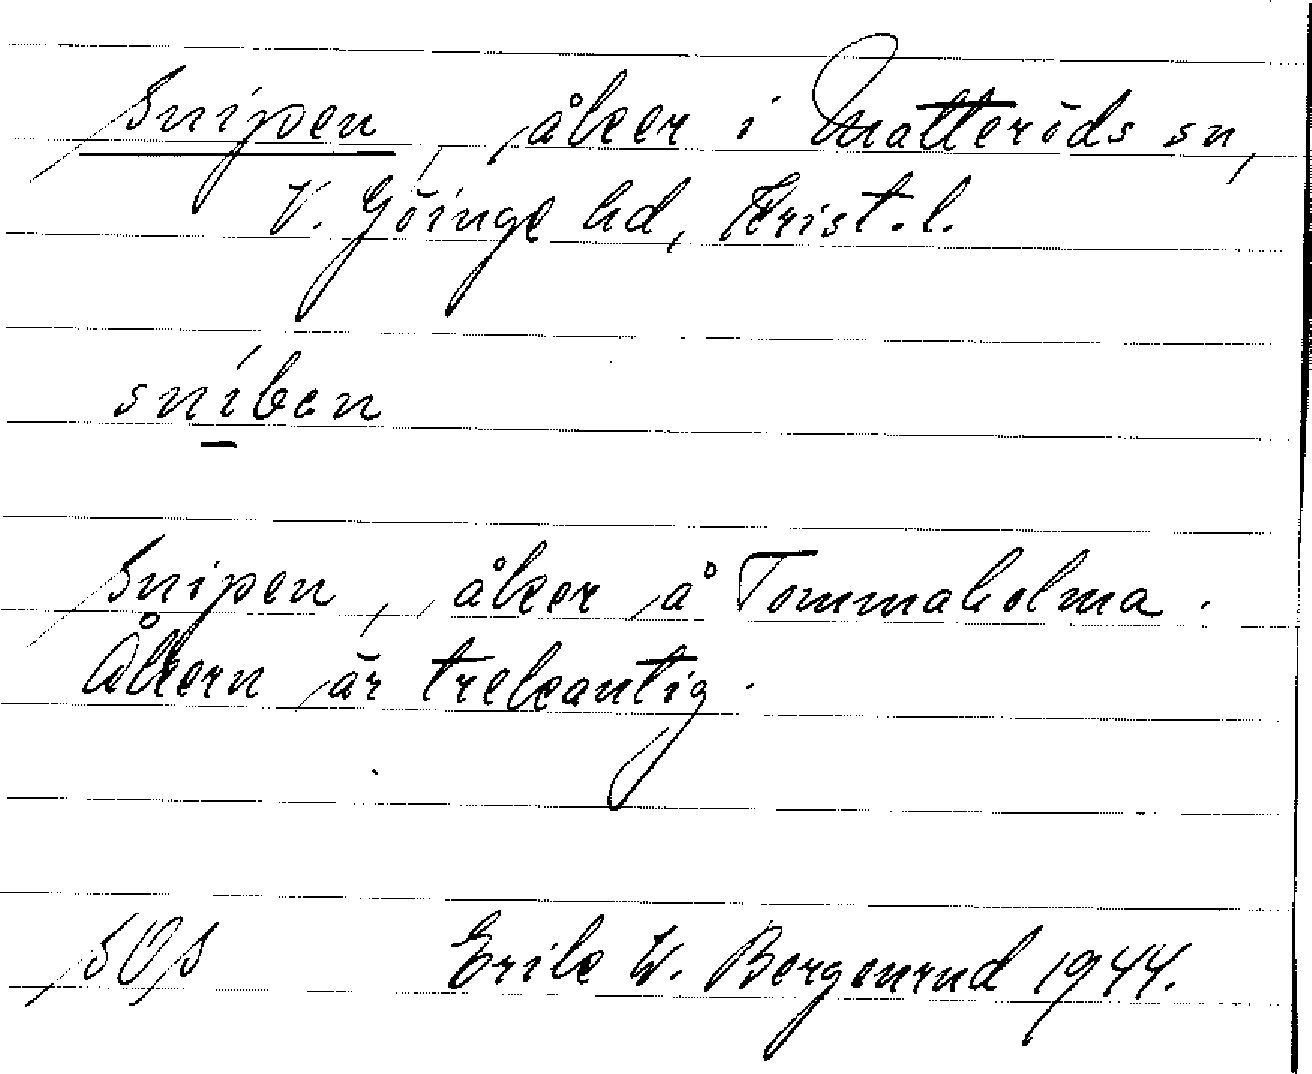 Snipen, åker i Matteröds sn,
V. Göinge hd, Krist. l.
sníben
Snipen, åker å Tommaholma.
Åkern är trekantig.
SOS Erik W. Bergenrud 1944.